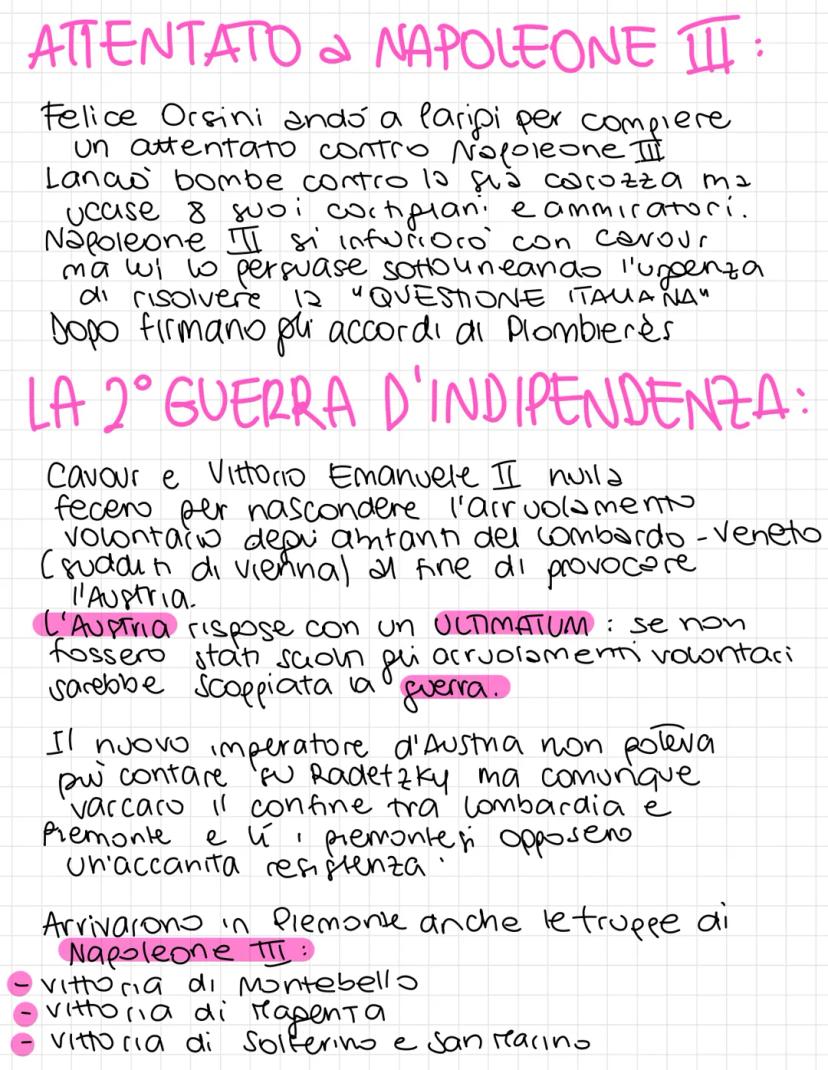 ATTENTATO a NAPOLEONE III:
Felice Orsini andó a Parigi per compiere
un attentato contro Napoleone III
Lanciò bombe contro la sua carozza ma
uccise 8 suoi cortigiani e ammiratori.
Napoleone III si infuriorò con Cavour
ma lui lo persuase sottolineando l'urgenza
di risolvere la "QUESTIONE ITALIANA"
Dopo firmano gli accordi di Plombierès
LA 2° GUERRA D'INDIPENDENZA:
Cavour e Vittorio Emanuele II nulla
fecero per nascondere l'arruolamento
volontario degli abitanti del Lombardo-Veneto
(sudditi di Vienna) al fine di provocare
l'Austria.
L'Austria rispose con un ULTIMATUM: se non
fossero stati sciolti gli arruolamenti volontari
sarebbe scoppiata la guerra.
Il nuovo imperatore d'Austria non poteva
più contare su Radetzky ma comunque
varcaro il confine tra Lombardia e
Piemonte e lí i piemontesi opposero
un'accanita resistenza.
Arrivarono in Piemonte anche le truppe di
Napoleone III:
- vittoria di Montebello
- vittoria di Magenta
- vittoria di Solferino e San Marino